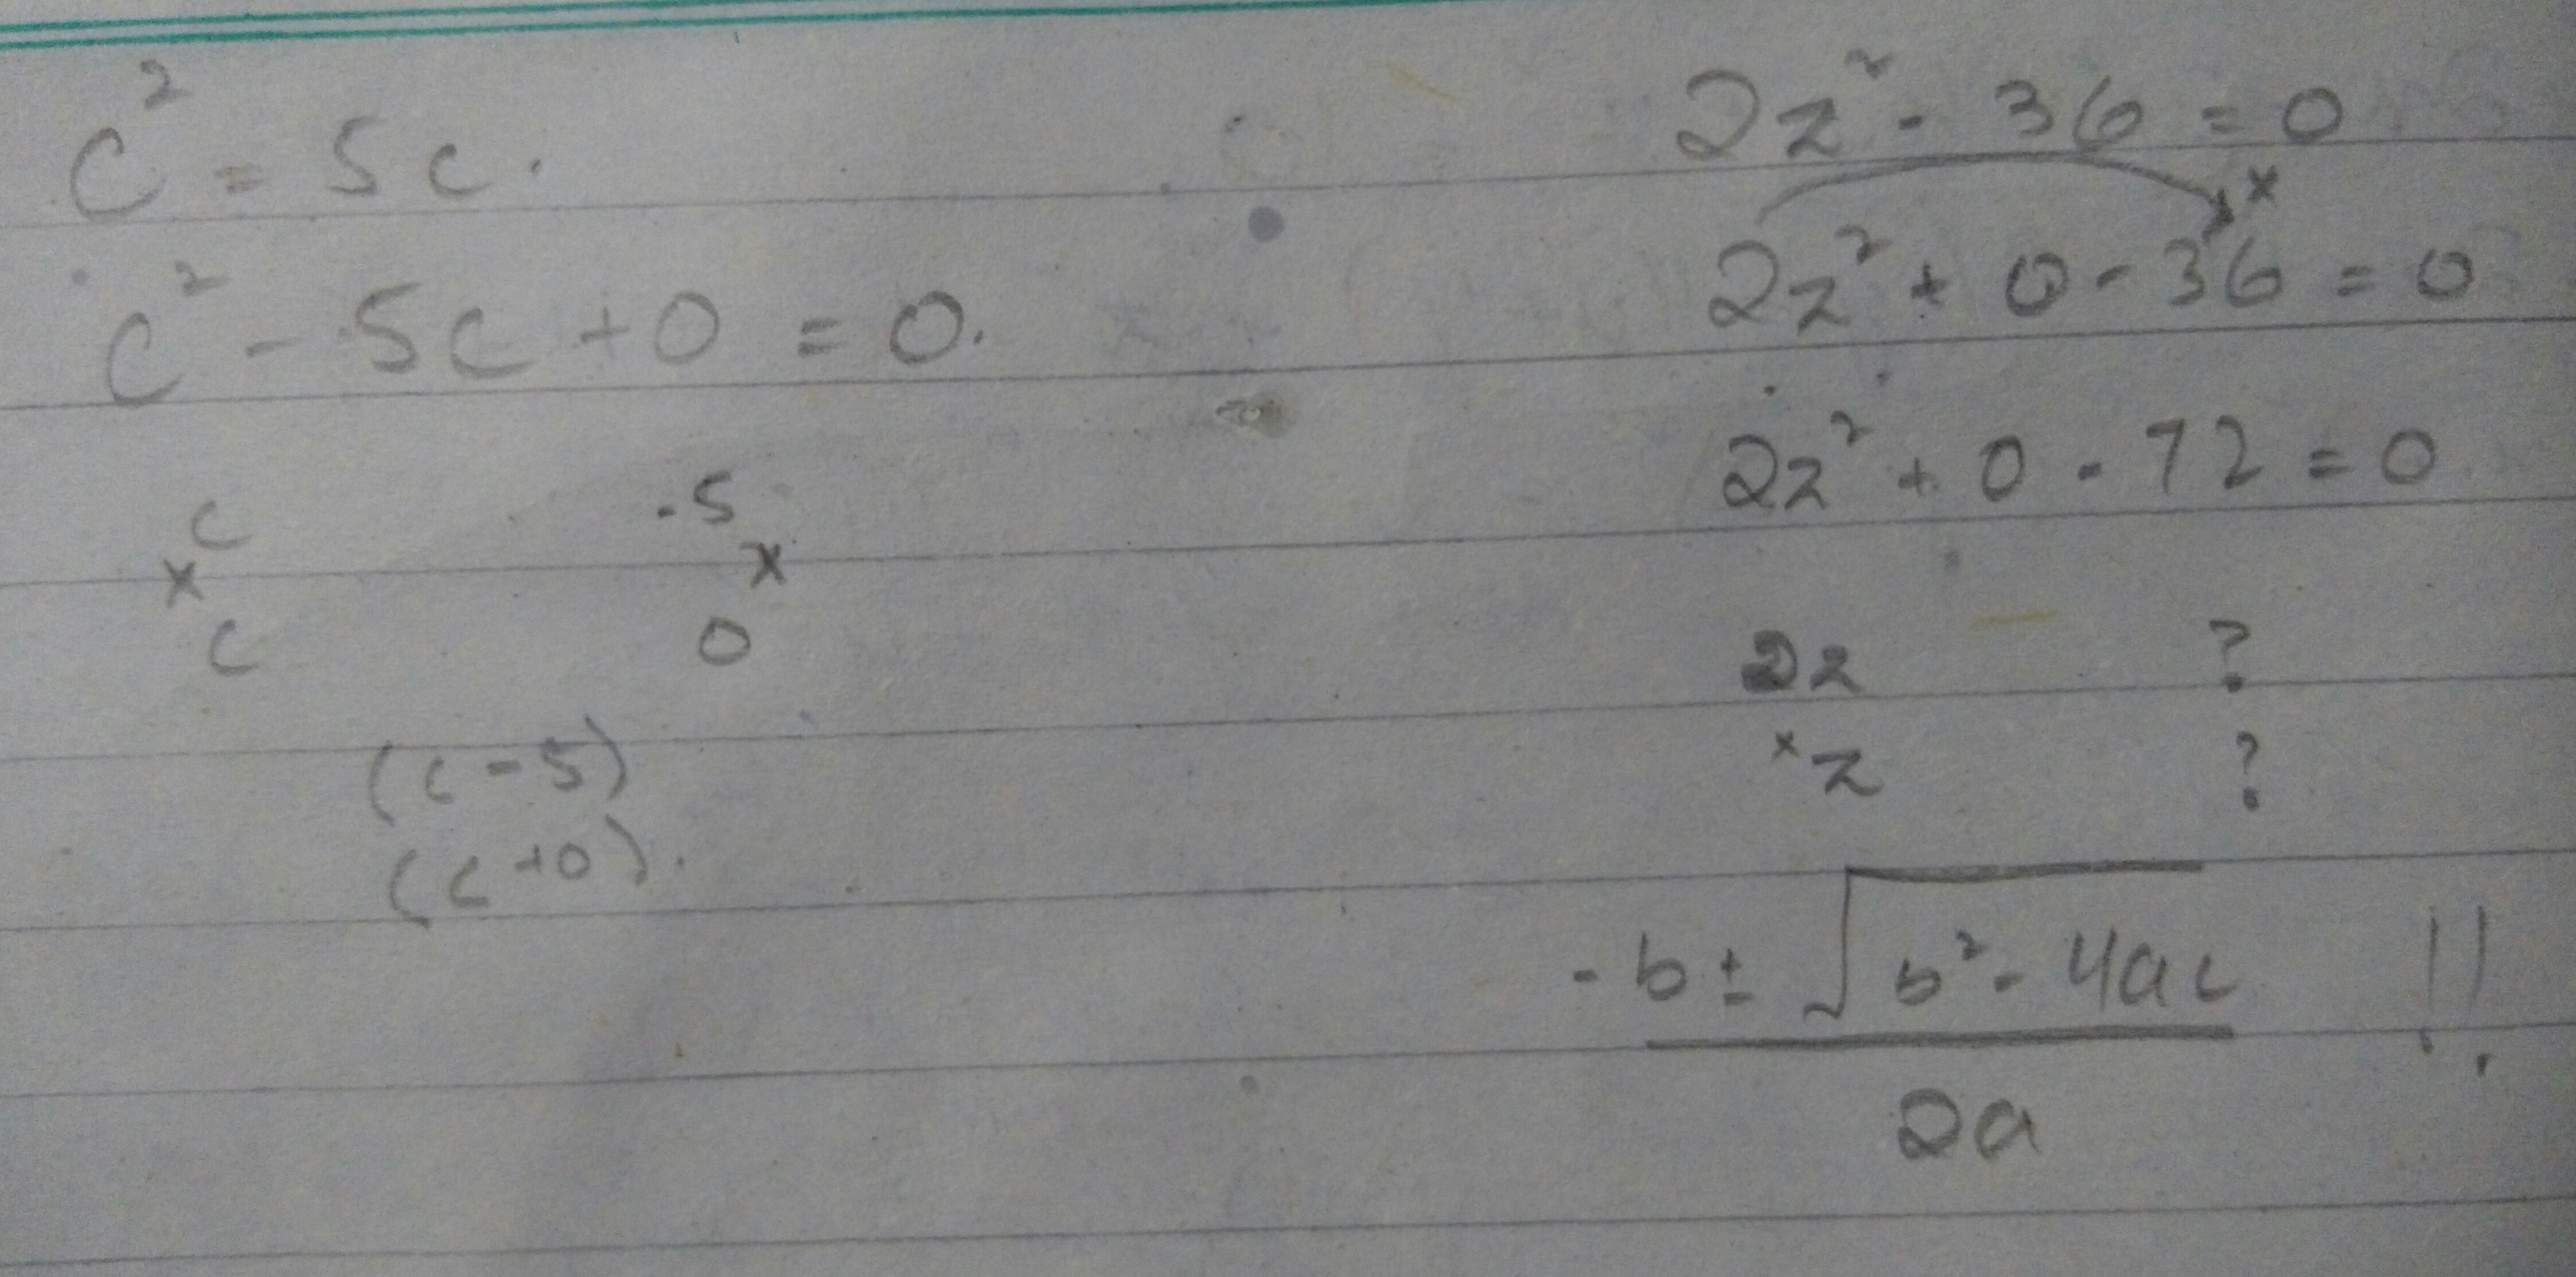 c² = 5c.
c² - 5c + 0 = 0.
c -5
x x
c 0
(c - 5)
(c + 0).
2z² - 36 = 0
x
2z² + 0 - 36 = 0
2z² + 0 - 72 = 0
2z ?
x z ?
-b ± √b² - 4ac !!
2a